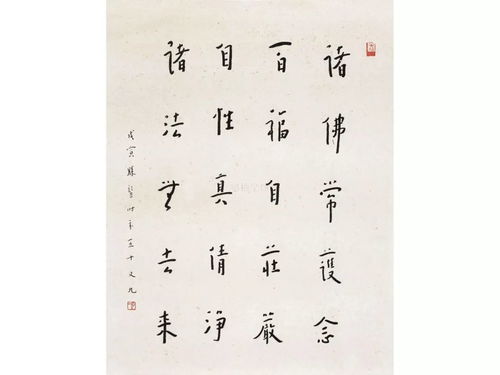 諸佛常護念
百福自莊嚴
自性真清淨
諸法無去來
戊寅 时年五十又九